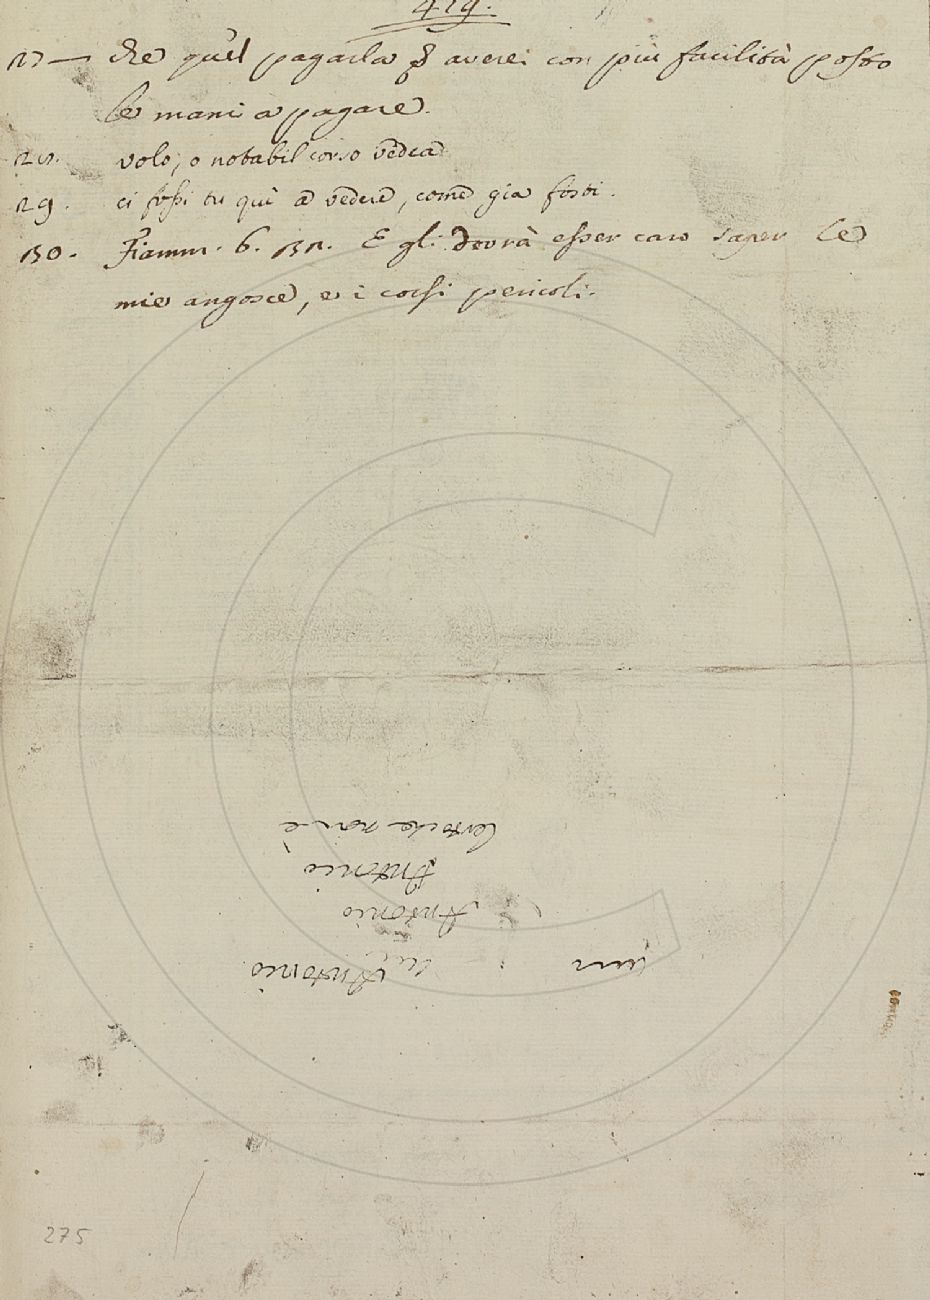 419.
27 — che quel pagarla p averei con più facilità posto
le mani a pagare.
28. volo, o notabil corso vedea
29. ci fossi tu quì a vedere, come già fosti.
30. Fiamm. 6. 31. E gli dovrà esser caro saper le
mie angosce, e i corsi pericoli.
Antonio
Antonio
Antonio
che non è
275